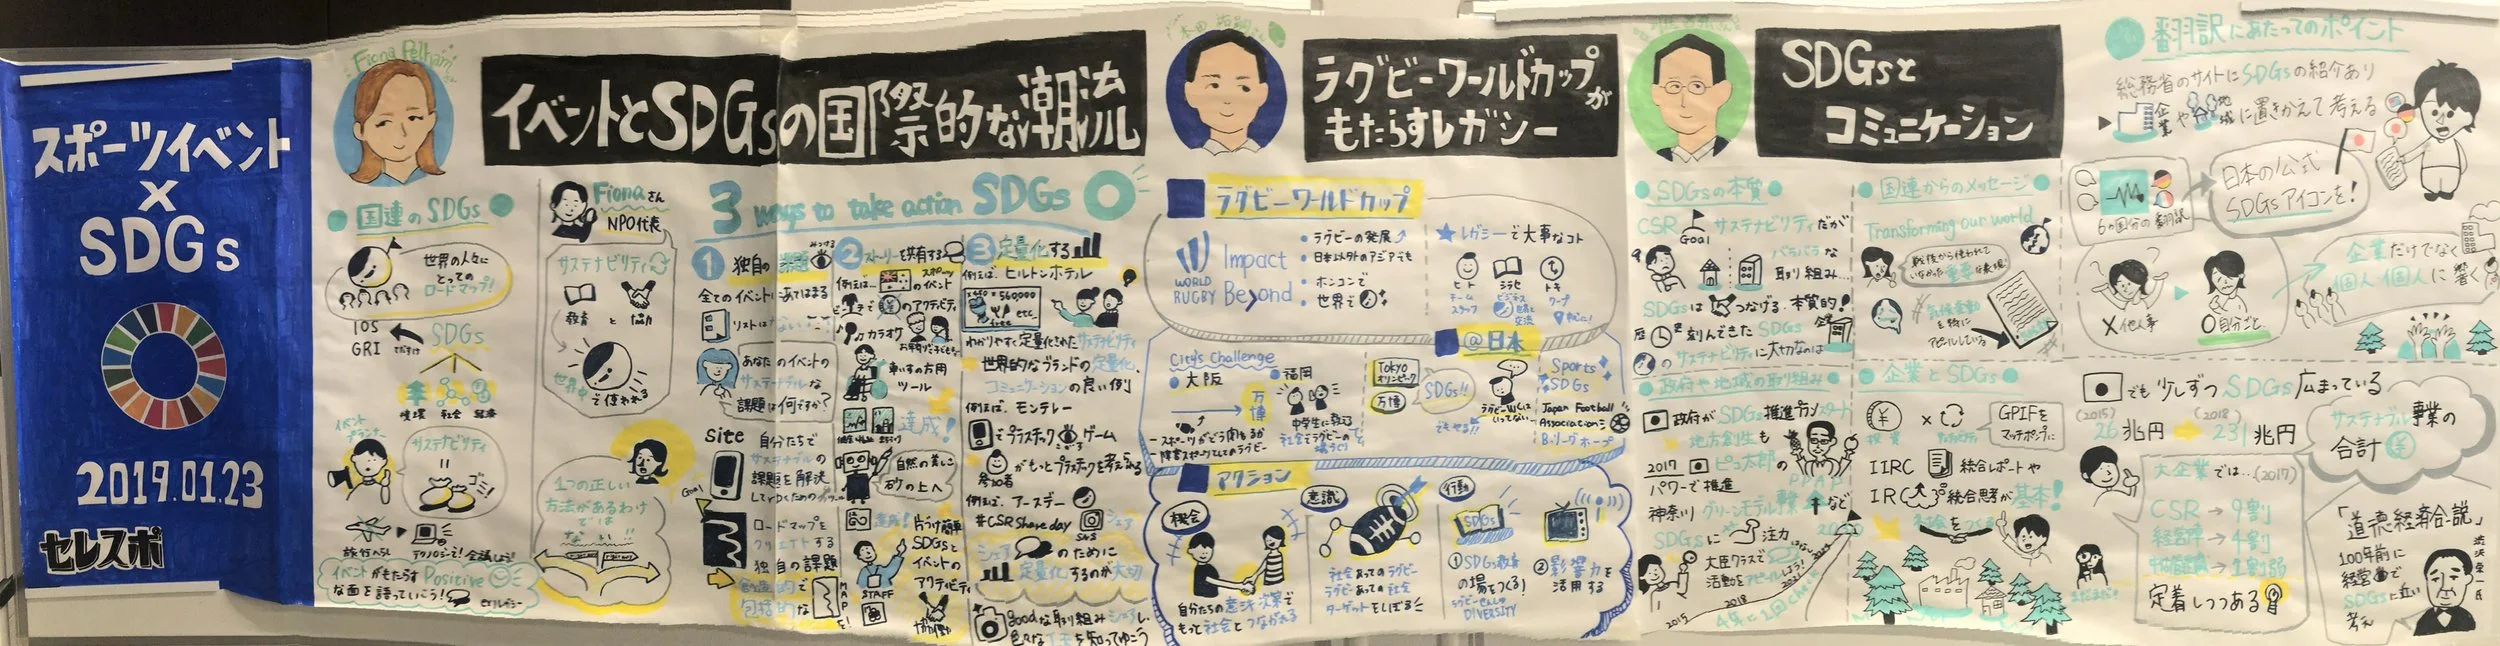 スポーツイベント
×
SDGs
2019.01.23
セレスポ
Fiona Pelham
イベントとSDGsの国際的な潮流
国連のSDGs
世界の人々に
とっての
ロードマップ!
IOS
GRI
SDGs
環境 社会 経済
イベント
プランナー
サステナビリティ
=
ゴミ!
イベントがもたらすPositive
な面を語っていこう!
Fionaさん
NPO代表
サステナビリティ
教育 と 協力
世界中
で使われる
1つの正しい
方法があるわけ
では
ない!!
3 ways to take action SDGs
1 独自の課題
全てのイベントにあてはまる
リストはない
あなたのイベントの
サステナブルな
課題は何ですか?
Site
自分たちで
サステナブルの
課題を解決
Goal
ロードマップを
クリエイトする
独自の課題
創造的で
包括的な
MAP
を!
2 ストーリーを共有する
例えば… スポーツ
のイベント
のアクティビティ
カラオケ
車いすの方用
ツール
達成!
自然の美しさ
砂の上へ
達成!
片づけ簡単
SDGsと
イベントの
アクティビティ
STAFF
協働
3 定量化する
例えば、ヒルトンホテル
=560,000
etc.
free
わかりやすく定量化されたサステナビリティ
世界的なブランドの定量化、
コミュニケーションの良い例
例えば、モンテレー
でプラスチック ゲーム
参加者
がもっとプラスチックを考えられる
例えば、アースデー
#CSR Share day
シェア
SNS
シェア のために
定量化するのが大切
goodな取り組みシェアし、
色々な工夫を知ってゆこう
ラグビーワールドカップが
もたらすレガシー
ラグビーワールドカップ
WORLD
RUGBY
Impact
Beyond
• ラグビーの発展
• 日本以外のアジアでも
• ホンコンで
• 世界で
★ レガシーで大事なコト
ヒト
チーム
スタッフ
シラセ
ビジネス
交流
トキ
@日本
City's Challenge
• 大阪
万博
• 福岡
中学生に教える
社会でラグビーの
場づくり
Tokyo
オリンピック
万博
SDGs!!
Sports
SDGs
Japan Football
Association
B.リーグホープ
アクション
機会
自分たちの意決定で
もっと社会とつながれる
意識
社会あってのラグビー
ラグビーあっての社会
ターゲットをしぼる
行動
SDGs
①SDGs教育
の場をつくる!
DIVERSITY
②影響力を
活用する
SDGsと
コミュニケーション
SDGsの本質
CSR サステナビリティだが
Goal
バラバラな
取り組み…
SDGsは つなげる、本質的!
歴 刻んできたSDGs
のサステナビリティに大切なのは
企業
国連からのメッセージ
Transforming our world
戦後から使われて
いなかった重要な表現!
#気候変動
を特に
アピールしている
政府や地域の取り組み
政府がSDGs推進プランスタート
地方創生も
2017 ピコ太郎の
パワーで推進
PPAP
神奈川 グリーンモデル事業 など
SDGsに 注力
大臣クラスで
活動をアピールしよう!
2015
2018
2030
企業とSDGs
投資
×
GPIFを
マッチポンプに
IIRC 統合レポートや
IRC 統合思考が基本!
翻訳にあたってのポイント
総務省のサイトにSDGsの紹介あり
企業や地域に置きかえて考える
6の国分の翻訳
日本の公式
SDGsアイコンを!
×他人事
○自分ごと
企業だけでなく
個人個人に響く
でも少しずつSDGs広まっている
(2015) (2018)
26兆円 231兆円
サステナブル事業の
合計
大企業では…(2017)
CSR→9割
経営陣→4割
中間管理職→1割弱
定着しつつある
まだまだ!
「道徳経済合一説」
100年前に
経営で
SDGsに近い
考え
渋沢栄一氏